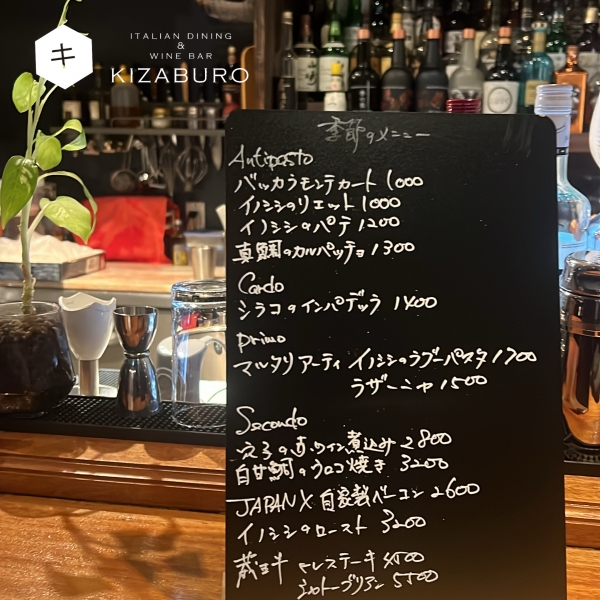 キ
ITALIAN DINING
&
WINE BAR
KIZABURO
季節のメニュー
Antipasto
バッカラモンテカート 1000
イノシシのリエット 1000
イノシシのパテ 1200
真鯛のカルパッチョ 1300
Cardo
シラコのインパデッラ 1400
primo
マルタリアーティ イノシシのラグーパスタ 1700
ラザーニャ 1500
Secondo
の赤ワイン煮込み 2800
白甘鯛のウロコ焼き 3200
JAPAN X 自家製ベーコン 2600
イノシシのロースト 3200
蔵王牛 ヒレステーキ 4500
シャトーブリアン 5500